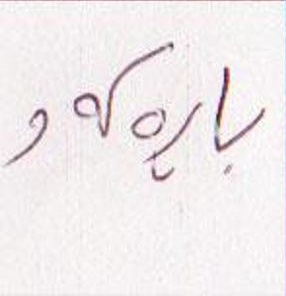 باڕەکەو